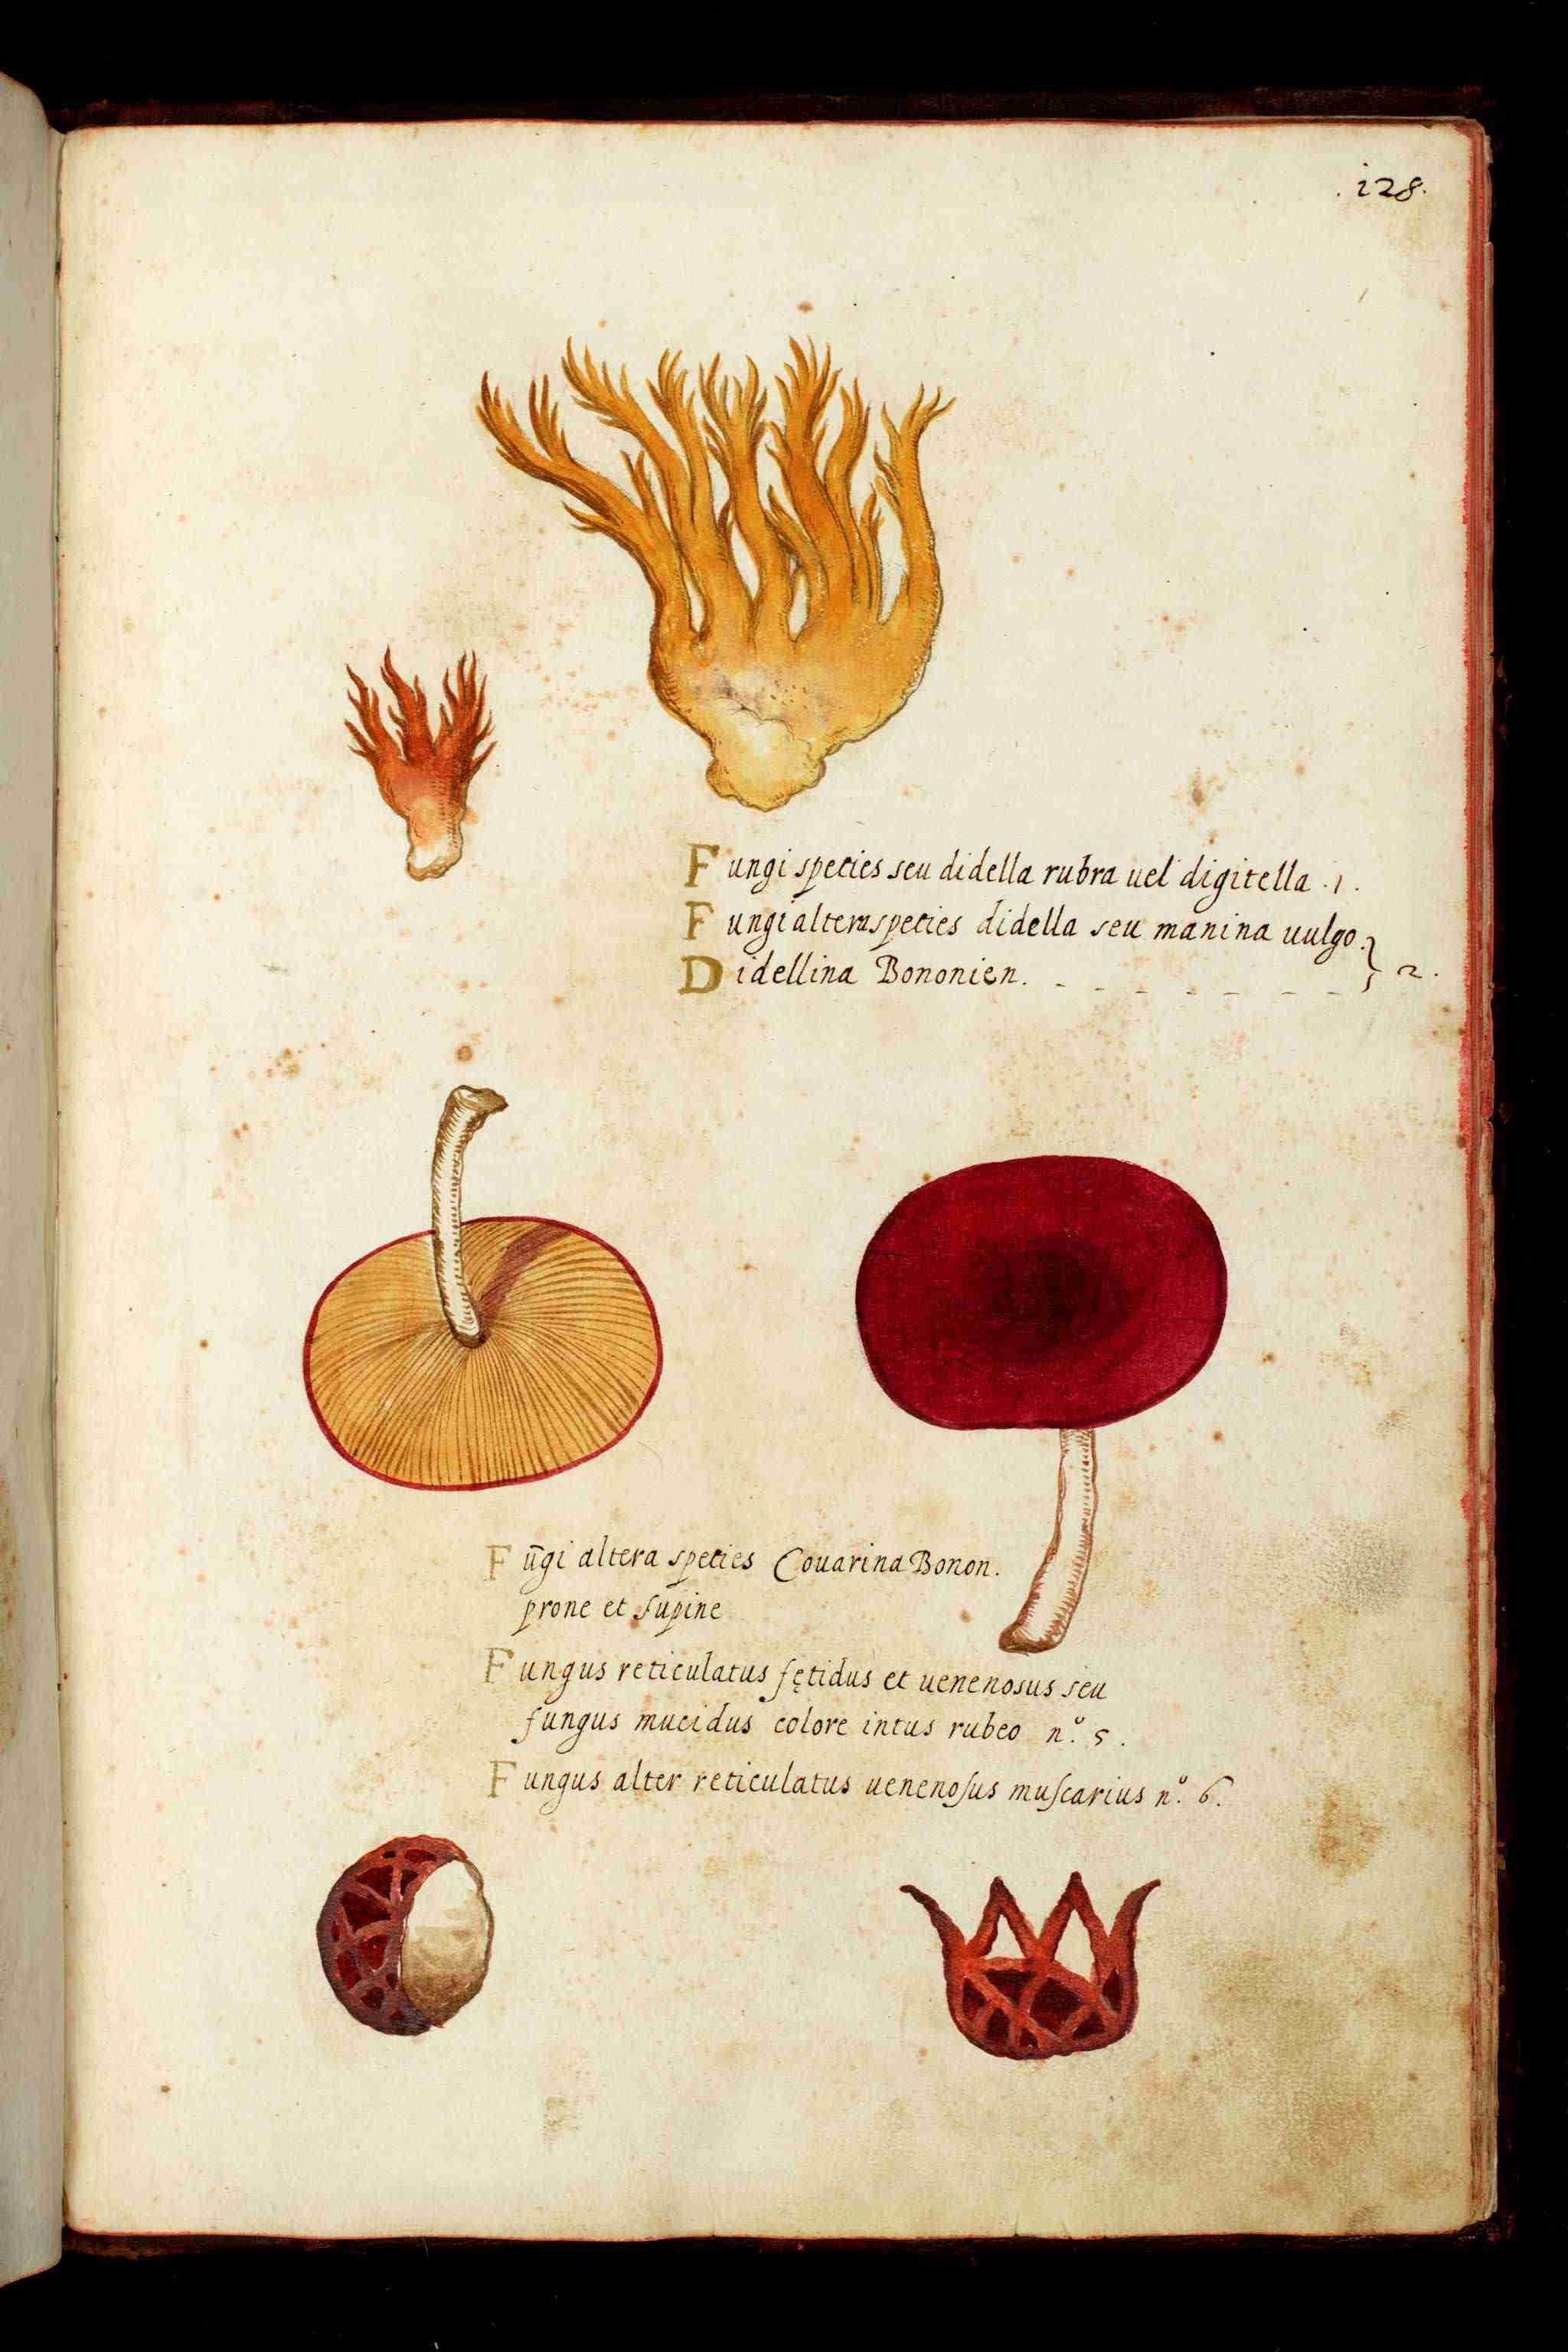 .128.
Fungi species seu didella rubra uel digitella .1.
Fungi altera species didella seu manina uulgo.
Didellina Bononien. - - - - - - - } 2.
Fūgi altera species Couarina Bonon.
prone et supine
Fungus reticulatus fętidus et uenenosus seu
fungus mucidus colore intus rubeo n.º 5.
Fungus alter reticulatus uenenosus muscarius n.º 6.